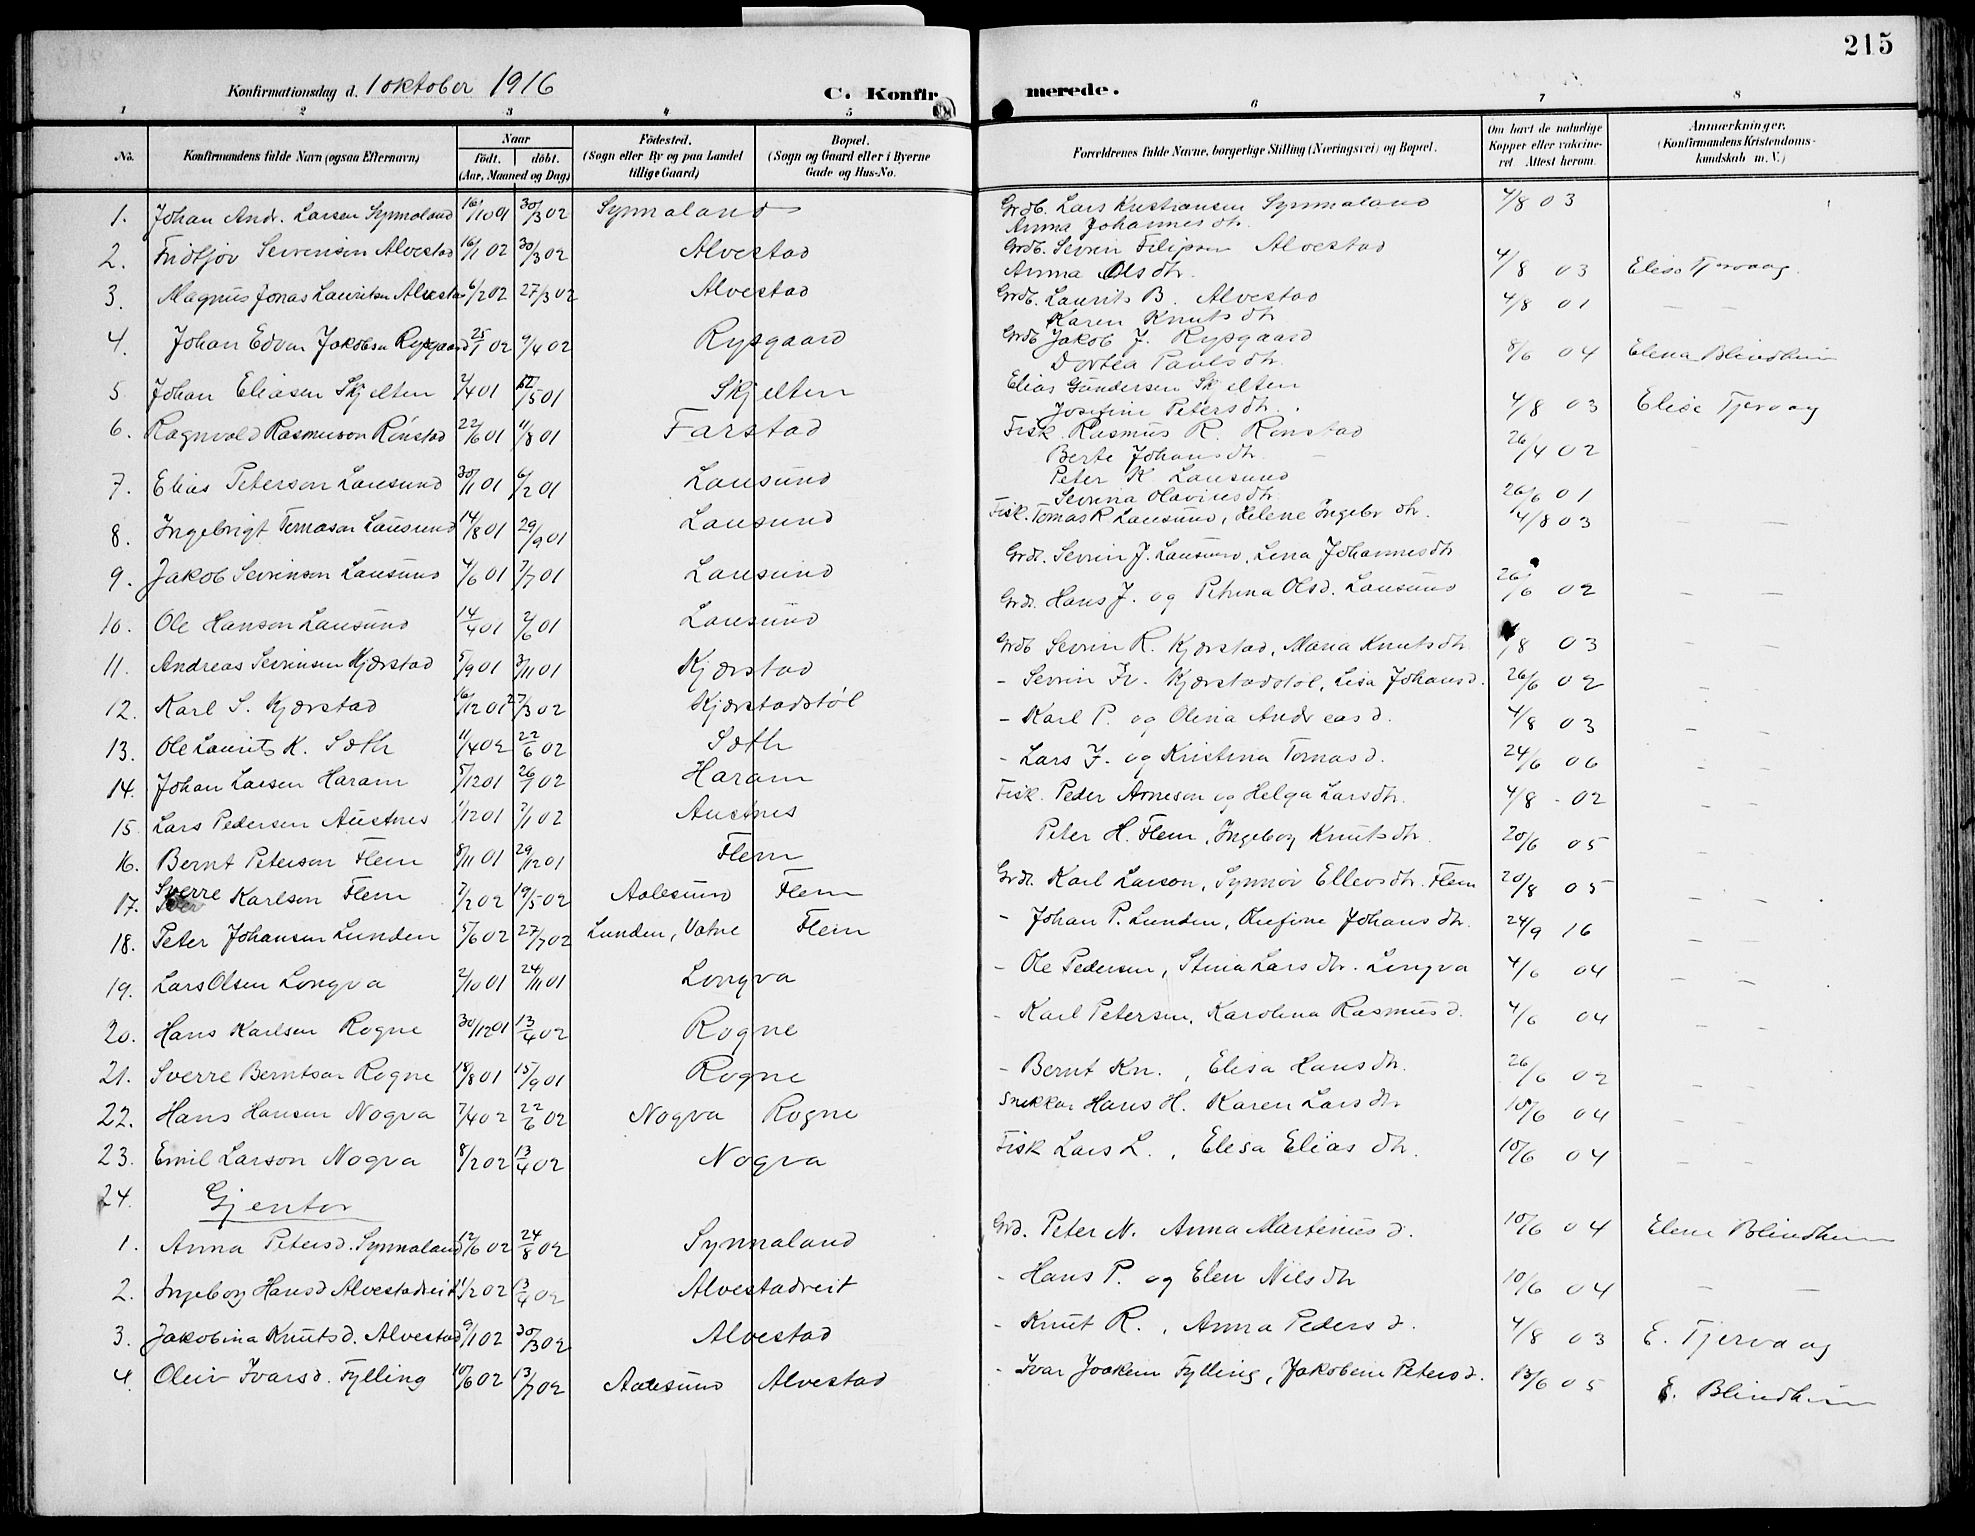 215
Konfirmationsdag d. 1 oktober 1916 C. Konfirmerede.
1 2 3 4 5 6 7 8
No. Konfirmandens fulde Navn (ogsaa Efternavn) Naar födt. döbt. (Aar, Maaned og Dag) Födested. (Sogn eller By og paa Landet tillige Gaard) Bopæl. (Sogn og Gaard eller i Byerne Gade og Hus-No. Forældrenes fulde Navne, borgerlige Stilling (Næringsvei) og Bopæl. Om havt de naturlige Kopper eller vakcineret. Attest herom. Anmærkninger. (Konfirmandens Kristendomskundskab m. V.)
1. Johan Andr. Larsen Synnaland 16/10 01 30/3 02 Synnaland Grdb. Lars Kristiansen Synnaland 4/8 03
Anna Johannesdtr.
2. Fridtjov Sevrinsen Alvestad 16/1 02 30/3 02 Alvestad Grdb. Sevrin Filipsen Alvestad
Anna Olsdtr. 4/8 03 Elise Tjervaag
3. Magnus Jonas Lauritsen Alvestad 6/2 02 27/3 02 Alvestad Grdb. Laurits B. Alvestad 4/8 01 — —
Karen Knutsdtr
4. Johan Edvan Jakobsen Rypgaard 25/1 02 9/4 02 Rypgaard Grdb Jakob J. Rypgaard
Dortea Paulsdtr. 8/6 04 Elena Blindheim
5 Johan Eliasen Skjelten 2/4 01 12/5 01 Skjelten Elias Gundersen Skjelten
Josefine Petersdtr. 4/8 03 Elise Tjervaag
6. Ragnvald Rasmuson Rinstad 22/6 01 11/8 01 Farstad Fisk. Rasmus R. Rinstad
Berte Johansdtr. 26/4 02 —
7. Elias Peterson Lausund 30/1 01 6/2 01 Lausund Peter K Lausund
Sevrina Olavinesdtr 26/6 01
8. Ingebrigt Tomasson Lausund 14/8 01 29/9 01 Lausund Fisk. Tomas R Lausund, Helene Ingebr dtr. 4/8 03 — —
9. Jakob Sevrinsen Lausund 4/6 01 7/7 01 Lausund Grdr. Sevrin J. Lausund, Lena Johannesdtr
26/6 02 — —
10. Ole Hanson Lausund 14/4 01 2/6 01 Lausund Grdr. Hans J. og Petrina Olsd. Lausund
11. Andreas Sevrinsen Kjærstad 5/9 01 3/11 01 Kjærstad Grdb Sevrin R. Kjærstad, Maria Knutsdtr. 4/8 03 — —
12. Karl S. Kjærstad 16/12 01 27/3 02 Kjærstadstöl - Sevrin Kr. Kjærstadstöl, Lisa Johansd. 26/6 02 — —
13. Ole Laurits K. Sæth 11/4 02 22/6 02 Sæth - Karl P. og Olina Andreasd. 4/8 03 — —
14. Johan Larsen Haram 5/12 01 26/1 02 Haram - Lars J. og Kristina Tomasd. 24/6 06 — —
15 Lars Pedersen Austnes 1/12 01 2/1 02 Austnes Fisk. Peder Arneson og Helga Larsdtr. 4/8 - 02 — —
16. Bernt Peterson Flem 8/11 01 29/12 01 Flem Peter H. Flem, Ingeborg Knutsdtr. 20/6 05 —
17. Sverre Karlsen Flem 7/2 02 19/5 02 Aalesund Flem Grdr. Karl Larson, Synnöv Ellevsdtr. Flem 20/8 05 —
18. Peter Johansen Lunden 5/6 02 27/7 02 Lunden, Vatne Flem - Johan P. Lunden, Olufine Johansdtr. 24/9 16 — —
19. Lars Olsen Longva 2/10 01 24/11 01 Longva - Ole Pedersen, Stina Larsdtr. Longva 4/6 04 — —
20. Hans Karlsen Rogne 30/12 01 13/4 02 Rogne - Karl Petersen, Karolina Rasmusd. 4/6 04 — —
21. Sverre Berntsen Rogne 18/8 01 15/9 01 Rogne - Bernt Kn., Elisa Hansdtr. 26/6 02 — —
22. Hans Hansen Nogva 7/4 02 22/6 02 Nogva Rogne Snekkar Hans H. Karen Larsdtr 10/6 04 — —
23. Emil Larson Nogva 8/2 02 13/4 02 Nogva Fisk Lars L., Elisa Eliasdtr. 10/6 04 — —
24. Gjentor
1. Anna Petersd. Synnaland 12/6 02 24/8 02 Synnaland Grd. Peter N. Anna Martinusd. 10/6 04 Elene Blindheim
2. Ingeborg Hansd Alvestadreit 1/2 02 13/4 02 Alvestadreit - Hans P. og Elen Nilsdtr 10/6 04 — —
3. Jakobina Knutsd. Alvestad 9/1 02 30/3 02 Alvestad - Knut R., Anna Pedersd. 4/8 03 E. Tjervaag
4. Oleiv Ivarsd. Fylling 10/6 02 13/7 02 Aalesund Alvestad - Ivar Joakim Fylling, Jakobine Petersd. 13/6 05 E. Blindheim